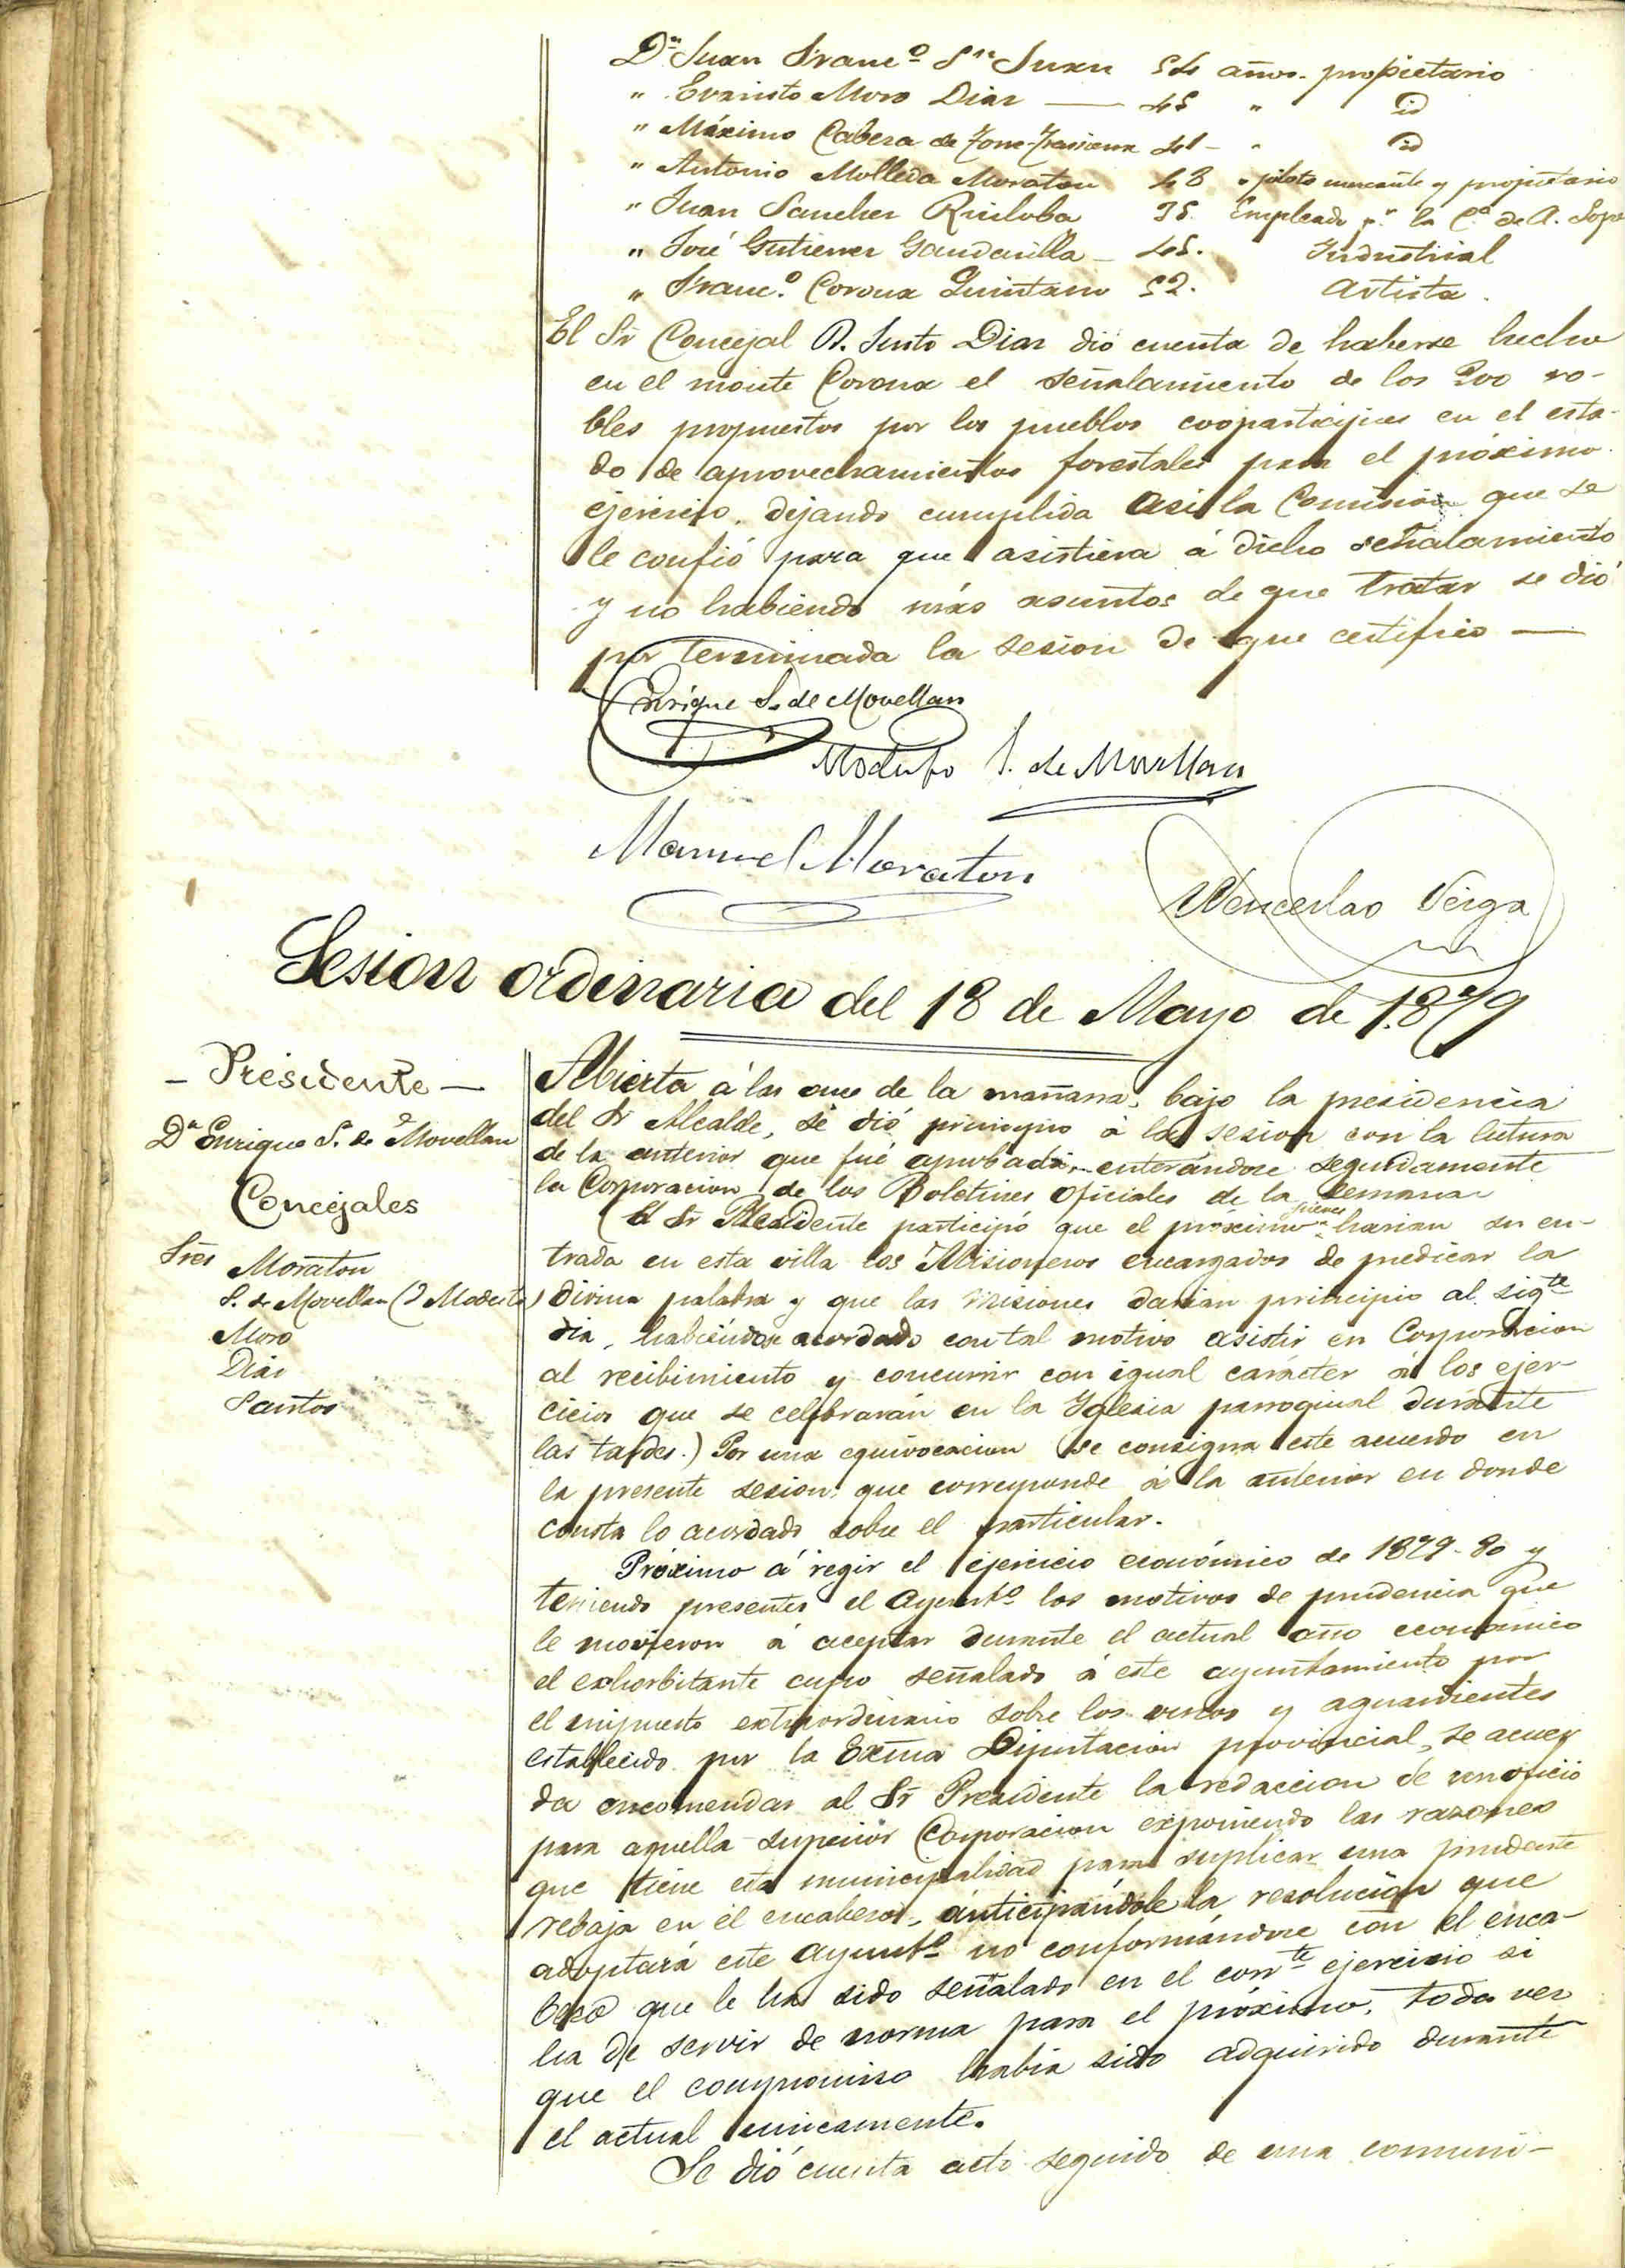 Dn Juan Francº Sn Juan 54 años. propietario
" Evaristo Moro Diaz — 45 " id
" Máximo Cabeza de 41 - " id
" Antonio Molleda Moraton 48 " piloto mercante y propietario
" Juan Sanchez Ruiloba 35. Empleado pr la C.ª de A. Lope
" José Gutierrez Gandarilla — 45. Industrial
" Franc.º Corona Quintana 52. Artista.
El Sr Concejal D. Justo Diaz dió cuenta de haberse hecho
en el monte Corona el señalamiento de los 200 ro-
bles propuestos por los pueblos coopartícipes en el esta-
do de aprovechamientos forestales para el próximo
ejercicio, dejando cumplida asi la Comisión que se
le confió para que asistiera á dicho señalamiento
y no habiendo más asuntos de que tratar se dió
por terminada la sesion de que certifico —
Enrique S. de Movellan
Modesto S. de Movellan
Manuel Moraton
Wenceslao Veiga
Sesion ordinaria del 18 de Mayo de 1.879
— Presidente —
Dn Enrique S. de Movellan
Concejales
Sres Moraton
S. de Movellan (D Modesto)
Moro
Diaz
Santos
Abierta á las once de la mañana, bajo la presidencia
del Sr Alcalde, se dió principio á la sesion con la lectura
de la anterior que fué aprobada, enterándose seguidamente
la Corporacion de los Boletines oficiales de la semana
(El Sr Presidente participó que el próximo jueves harian su en-
trada en esta villa los Misioneros encargados de predicar la
divina palabra y que las misiones darian principio al sigte
dia, habiéndose acordado con tal motivo asistir en Corporacion
al recibimiento y concurrir con igual carácter á los ejer-
cicios que se celebrarán en la Yglesia parroquial durante
las tardes.) Por una equivocacion se consigna este acuerdo en
la presente sesion, que corresponde á la anterior en donde
consta lo acordado sobre el particular.
Próximo á regir el ejercicio económico de 1879-80 y
teniendo presentes el Ayuntº los motivos de prudencia que
le movieron á aceptar durante el actual año económico
el exhorbitante cupo señalado á este ayuntamiento por
el impuesto extraordinario sobre los vinos y aguardientes
establecido por la Excma Diputacion provincial, se acuer
da encomendar al Sr Presidente la redaccion de un oficio
para aquella superior Corporacion exponiendo las razones
que tiene esta municipalidad para suplicar una prudente
rebaja en el encabezo, anticipándole la resolucion que
adoptará este Ayuntº no conformándose con el enca-
bezo que le ha sido señalado en el corrte ejercicio si
ha de servir de norma para el próximo, toda vez
que el compromiso habia sido adquirido durante
el actual unicamente.
Se dió cuenta acto seguido de una comuni-